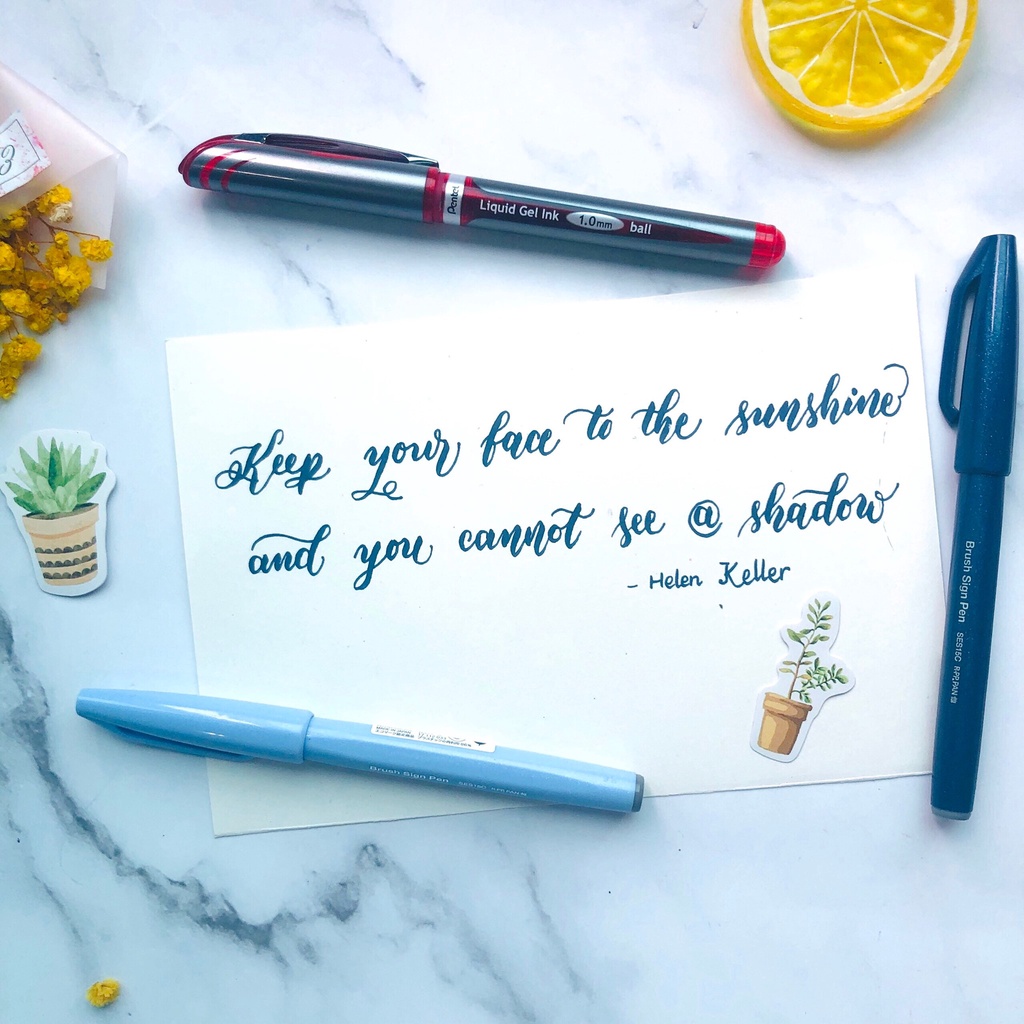 3
Pentel Liquid Gel Ink 1.0mm ball
Keep your face to the sunshine
and you cannot see @ shadow
- Helen Keller
Brush Sign Pen SES15C
Brush Sign Pen SES15C